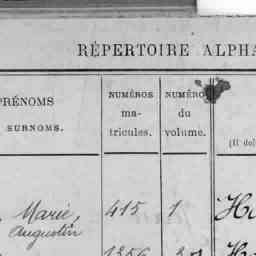 RÉPERTOIRE ALPHA
PRÉNOMS
SURNOMS.
NUMÉROS
ma-
tricules.
NUMÉRO
du
volume.
(Il doi
Marie,
Augustin
415
1
1256